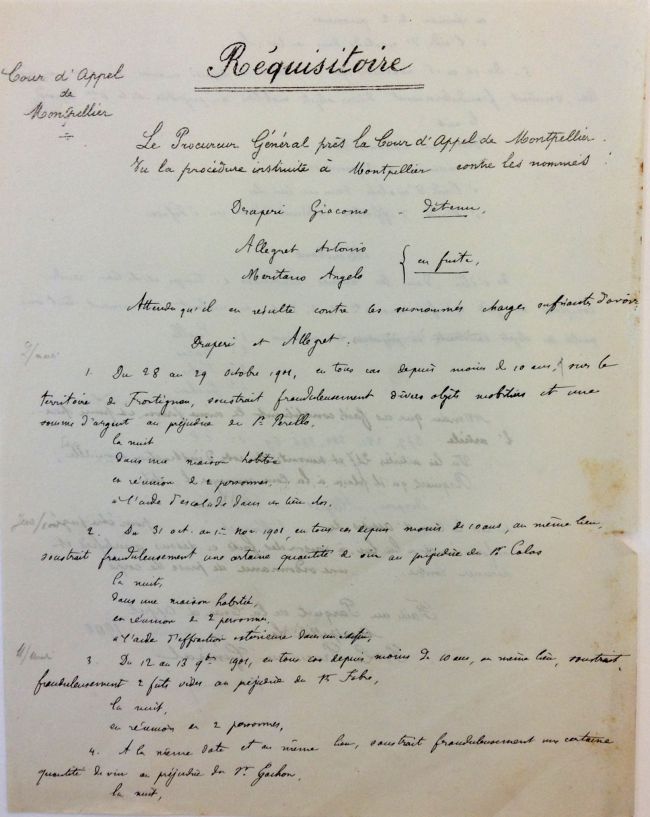 Réquisitoire
Cour d'Appel
de
Montpellier
Le Procureur Général près la Cour d'Appel de Montpellier.
Vu la procédure instruite à Montpellier contre les nommés :
Draperi Giacomo - détenu,
Allegret Antonio
Meritano Angelo { en fuite,
Attendu qu'il en résulte contre les susnommés charges suffisantes d'avoir
Draperi et Allegret.
1. Du 28 au 29 octobre 1901, en tous cas depuis moins de 10 ans, sur le
territoire de Frontignan, soustrait frauduleusement divers objets mobiliers et une
somme d'argent au préjudice de Sr Perello,
la nuit
dans une maison habitée
en réunion de 2 personnes,
à l'aide d'escalade dans un lieu clos.
2. Du 31 oct. au 1er Nov 1901, en tous cas depuis moins de 10 ans, au même lieu,
soustrait frauduleusement une certaine quantité de vin au préjudice du Sr Calas
la nuit,
dans une maison habitée,
en réunion de 2 personnes,
à l'aide d'effraction extérieure dans un
3. Du 12 au 13 9bre 1901, en tous cas depuis moins de 10 ans, au même lieu, soustrait
frauduleusement 2 fûts vides au préjudice du Sr Fabre,
la nuit,
en réunion de 2 personnes,
4. A la même date et au même lieu, soustrait frauduleusement une certaine
quantité de vin au préjudice du Sr Gachon,
la nuit,